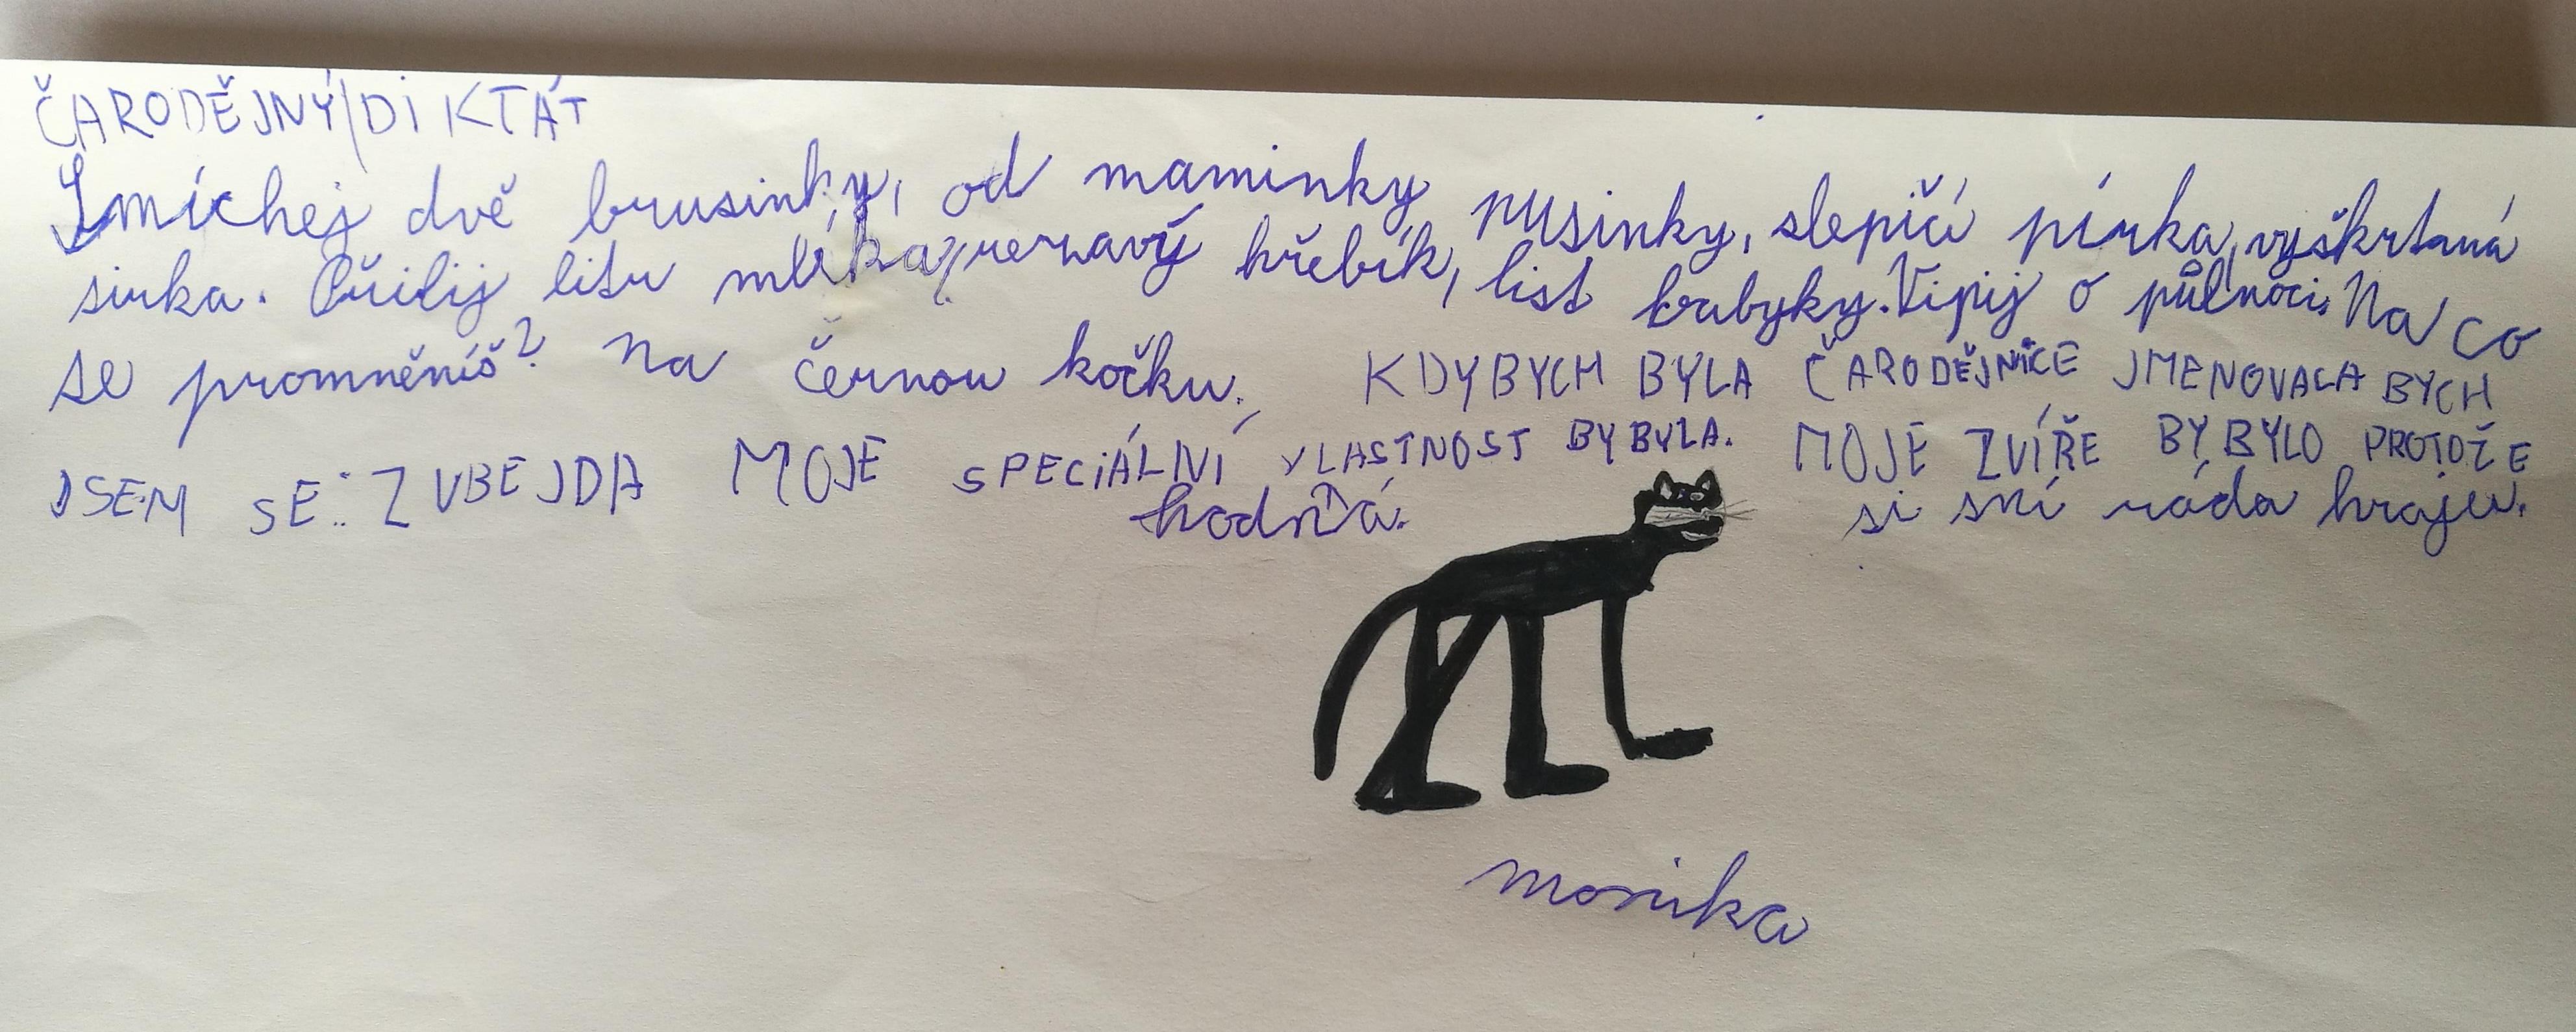 ČARODĚJNÝ/DiKTÁT
Smíchej dvě brusinky, od maminky pusinky, slepičí pírka, vyškrtaná
sirka. Přilij litr mlíka, rezavý hřebík, list trubyky. Vipij o půlnoci. Na co
se promněníš? Na černou kočku. KDYBYCH BYLA ČARODĚJNiCE JMENOVALA BYCH
JSEM SE: ZUBEJDA MOJE SPECiÁLNÍ VLASTNOST BY BYLA. MOJE ZVÍŘE BY BYLO PROTOŽE
hodná. si sní ráda hraju.
monika